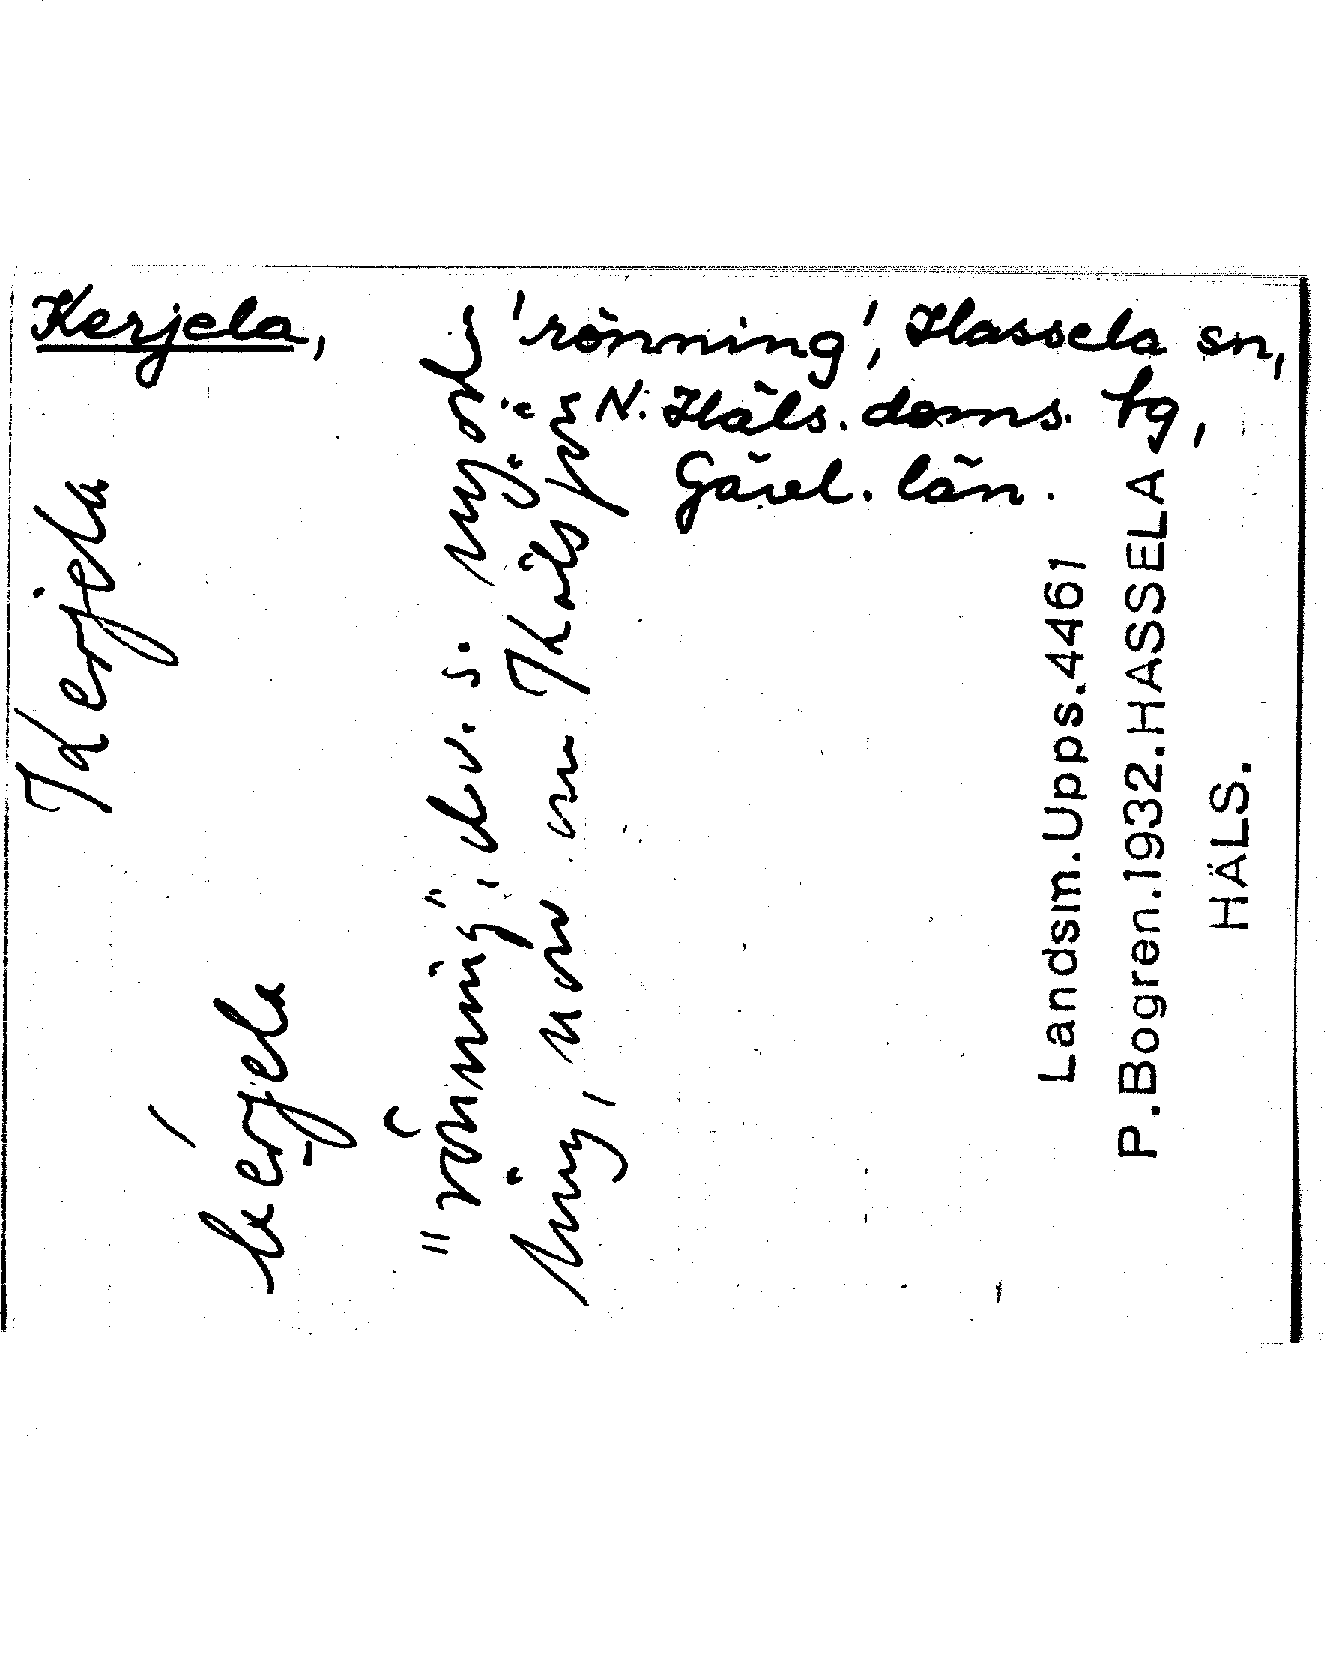 Kerjela, 'rönning', Hassela sn,
N. Häls. doms. tg,
Gävl. län.
Kerjela
kérjela
"rönning", d.v.s. nyod-
ling, nov. om
Landsm.Upps.4461
P.Bogren.1932.HASSELA
HÄLS.